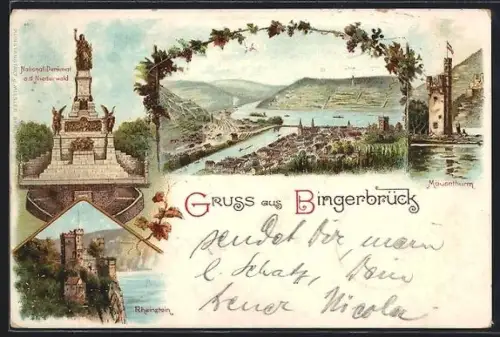 National-Denkmal
a. d. Niederwald
Mäusethurm
GRUSS aus BINGERBRÜCK
Rheinstein
sendet Dir, mein
l. Schatz, Dein
treuer Nicola